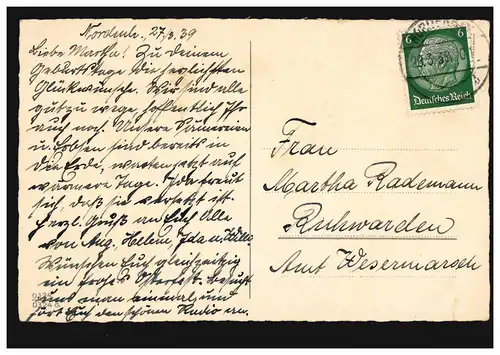 Nordenh. 27/3.39
Liebe Martha! Zu deinem
Geburtstage die herzlichsten
Glückwünsche. Wir sind alle
gut zu wege, hoffentlich Ihr
auch noch. Unsere Sämereien
u. Erbsen sind bereits in
die Erde, warten jetzt auf
wärmere Tage. Ida freut
sich, daß sie versetzt ist.
Herzl. Gruß an Euch Alle
von Aug. Helene, Ida u. Willi
Wünschen Euch gleichzeitig
ein frohes Osterfest. Besucht
uns man einmal und
hört Euch den schönen Radio an.
6 6
Deutsches Reich
Frau
Martha Rademann
Ruhwarden
Amt Wesermarsch